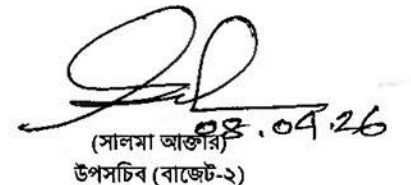 ০৪.০৭.26
(সালমা আক্তার)
উপসচিব (বাজেট-২)